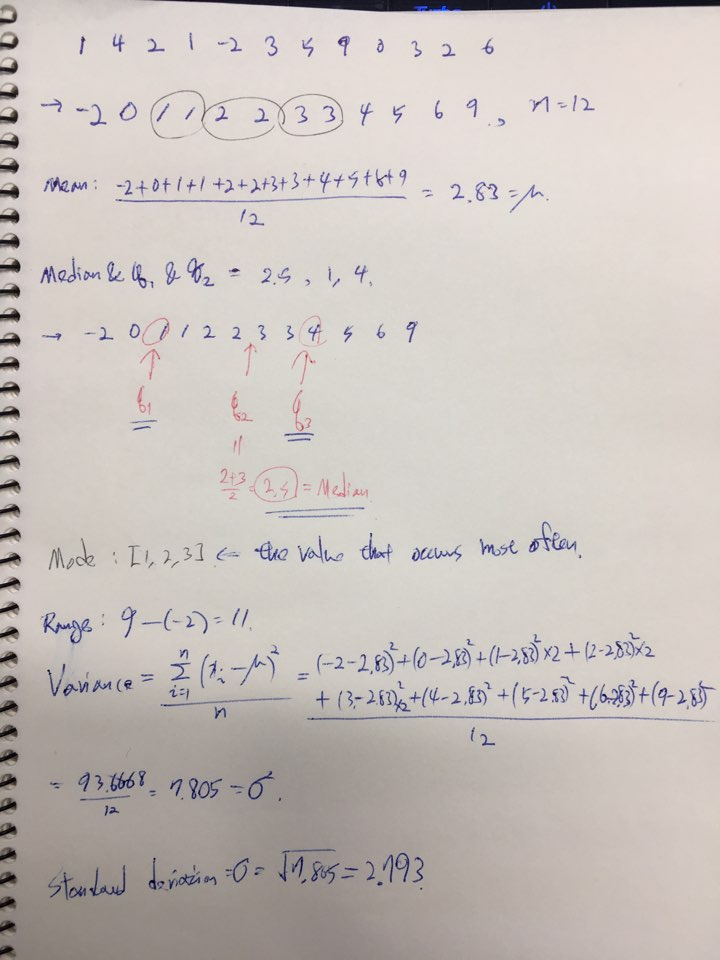 1 4 2 1 -2 3 5 9 0 3 2 6
→ -2 0 1 1 2 2 3 3 4 5 6 9 , n=12
Mean: (-2+0+1+1+2+2+3+3+4+5+6+9)/12 = 2.83 = μ.
Median & q₁ & q₂ = 2.5, 1, 4.
→ -2 0 1 1 2 2 3 3 4 5 6 9
↑ ↑ ↑
q₁ q₂ q₃
||
(2+3)/2 = 2.5 = Median
Mode : [1, 2, 3] ← the value that occurs most often.
Range: 9 - (-2) = 11.
Variance = ∑ⁿᵢ₌₁ (xᵢ - μ)² / n = (-2-2.83)²+(0-2.83)²+(1-2.83)²×2+(2-2.83)²×2
+(3-2.83)²×2+(4-2.83)²+(5-2.83)²+(6-2.83)²+(9-2.83)²
12
= 93.6668/12 = 7.805 = σ².
Standard deviation = σ = √7.805 = 2.793